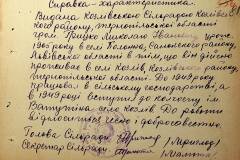 Справка-характеристика.
Видана Козлівською сільрадою Козлівсь-
кого району, Тернопільської області
гром. Грицко Миколаю Івановичу уродж.
1905 року в селі
Львівської області в тім, що він дійсно
проживає в селі Козлів, Козлівського району,
Тернопільської області. До 1949 року
працював в сільському господарстві, а
в 1949 році вступив до колгоспу ім.
Ватутіна с. Козлів. До роботи
відноситься чесно і добросовісно.
Голова Сільради
Секретар Сільради